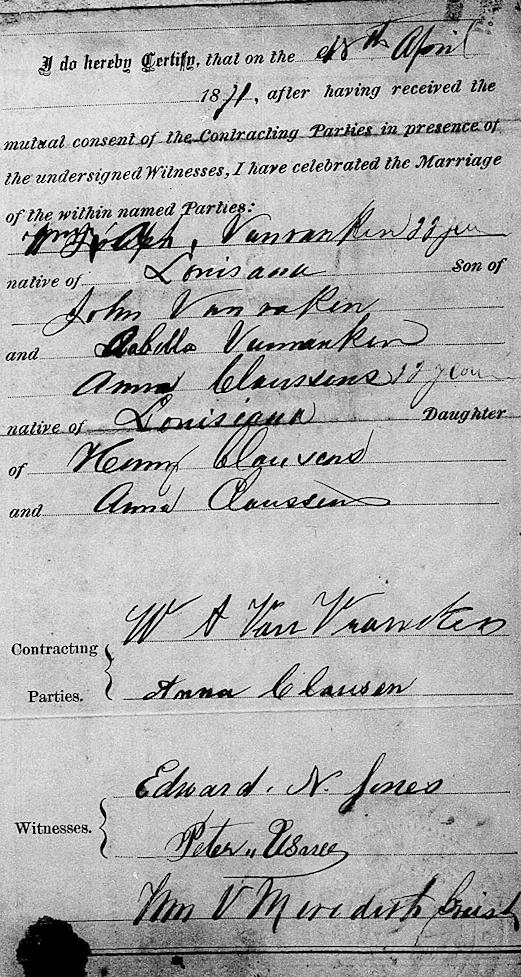 I do hereby Certify, that on the 18th April
1871, after having received the
mutual consent of the Contracting Parties in presence of
the undersigned Witnesses, I have celebrated the Marriage
of the within named Parties:
Vanranken 22
native of Louisana Son of
John Vanraken
and Vanranken
Anna Claussens 22
native of Louisiana Daughter
of Henry Clausens
and Anna Claussens
W A Van Vrancken
Contracting
Parties. Anna Clausen
Edward. N. Jones
Witnesses.
Peter
Wm V Meredith